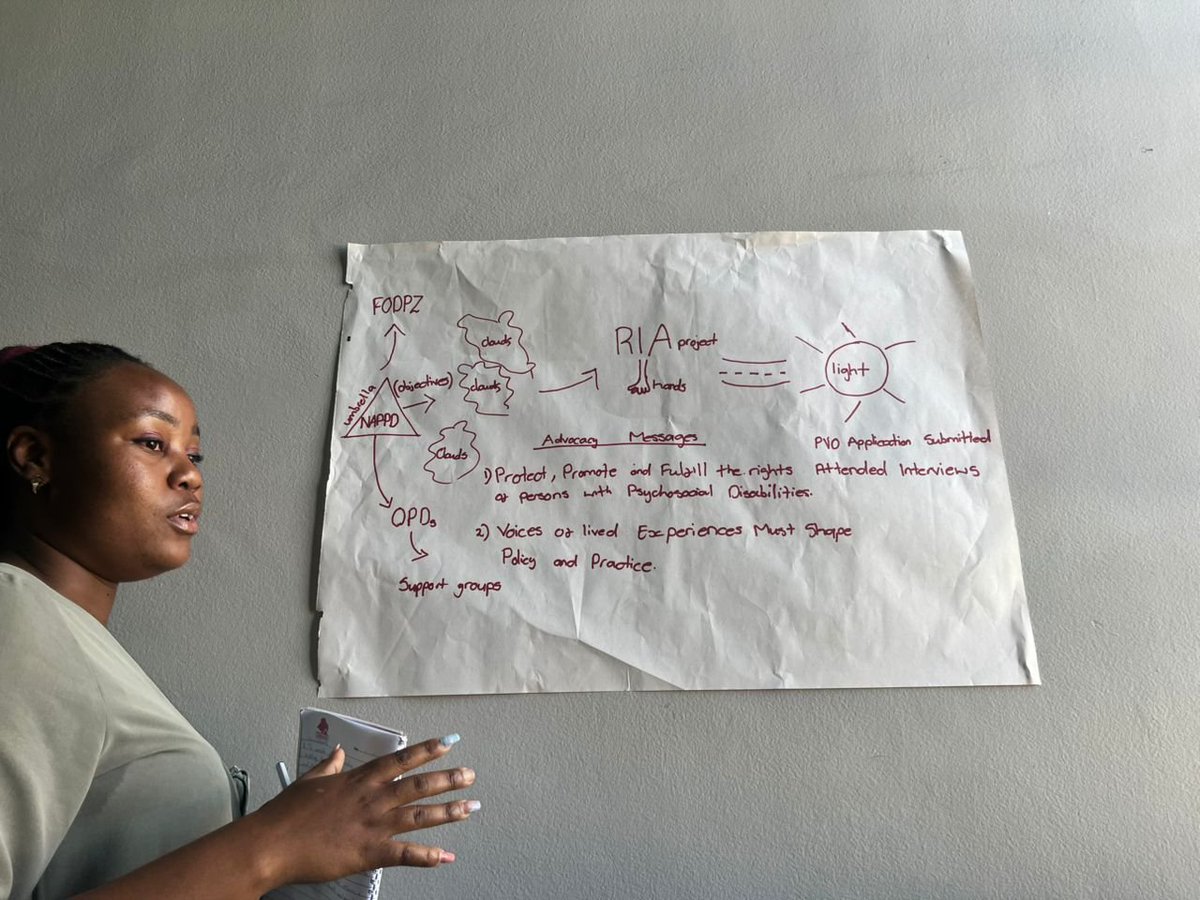 FODPZ
umbrella
NAPPD
(objectives)
clouds
clouds
Clouds
OPDs
Support groups
RIA project
hands
light
Advocacy Messages
1) Protect, Promote and Fulfill the rights
of persons with Psychosocial Disabilities.
2) Voices of lived Experiences Must Shape
Policy and Practice.
PVO Application Submitted
Attended Interviews